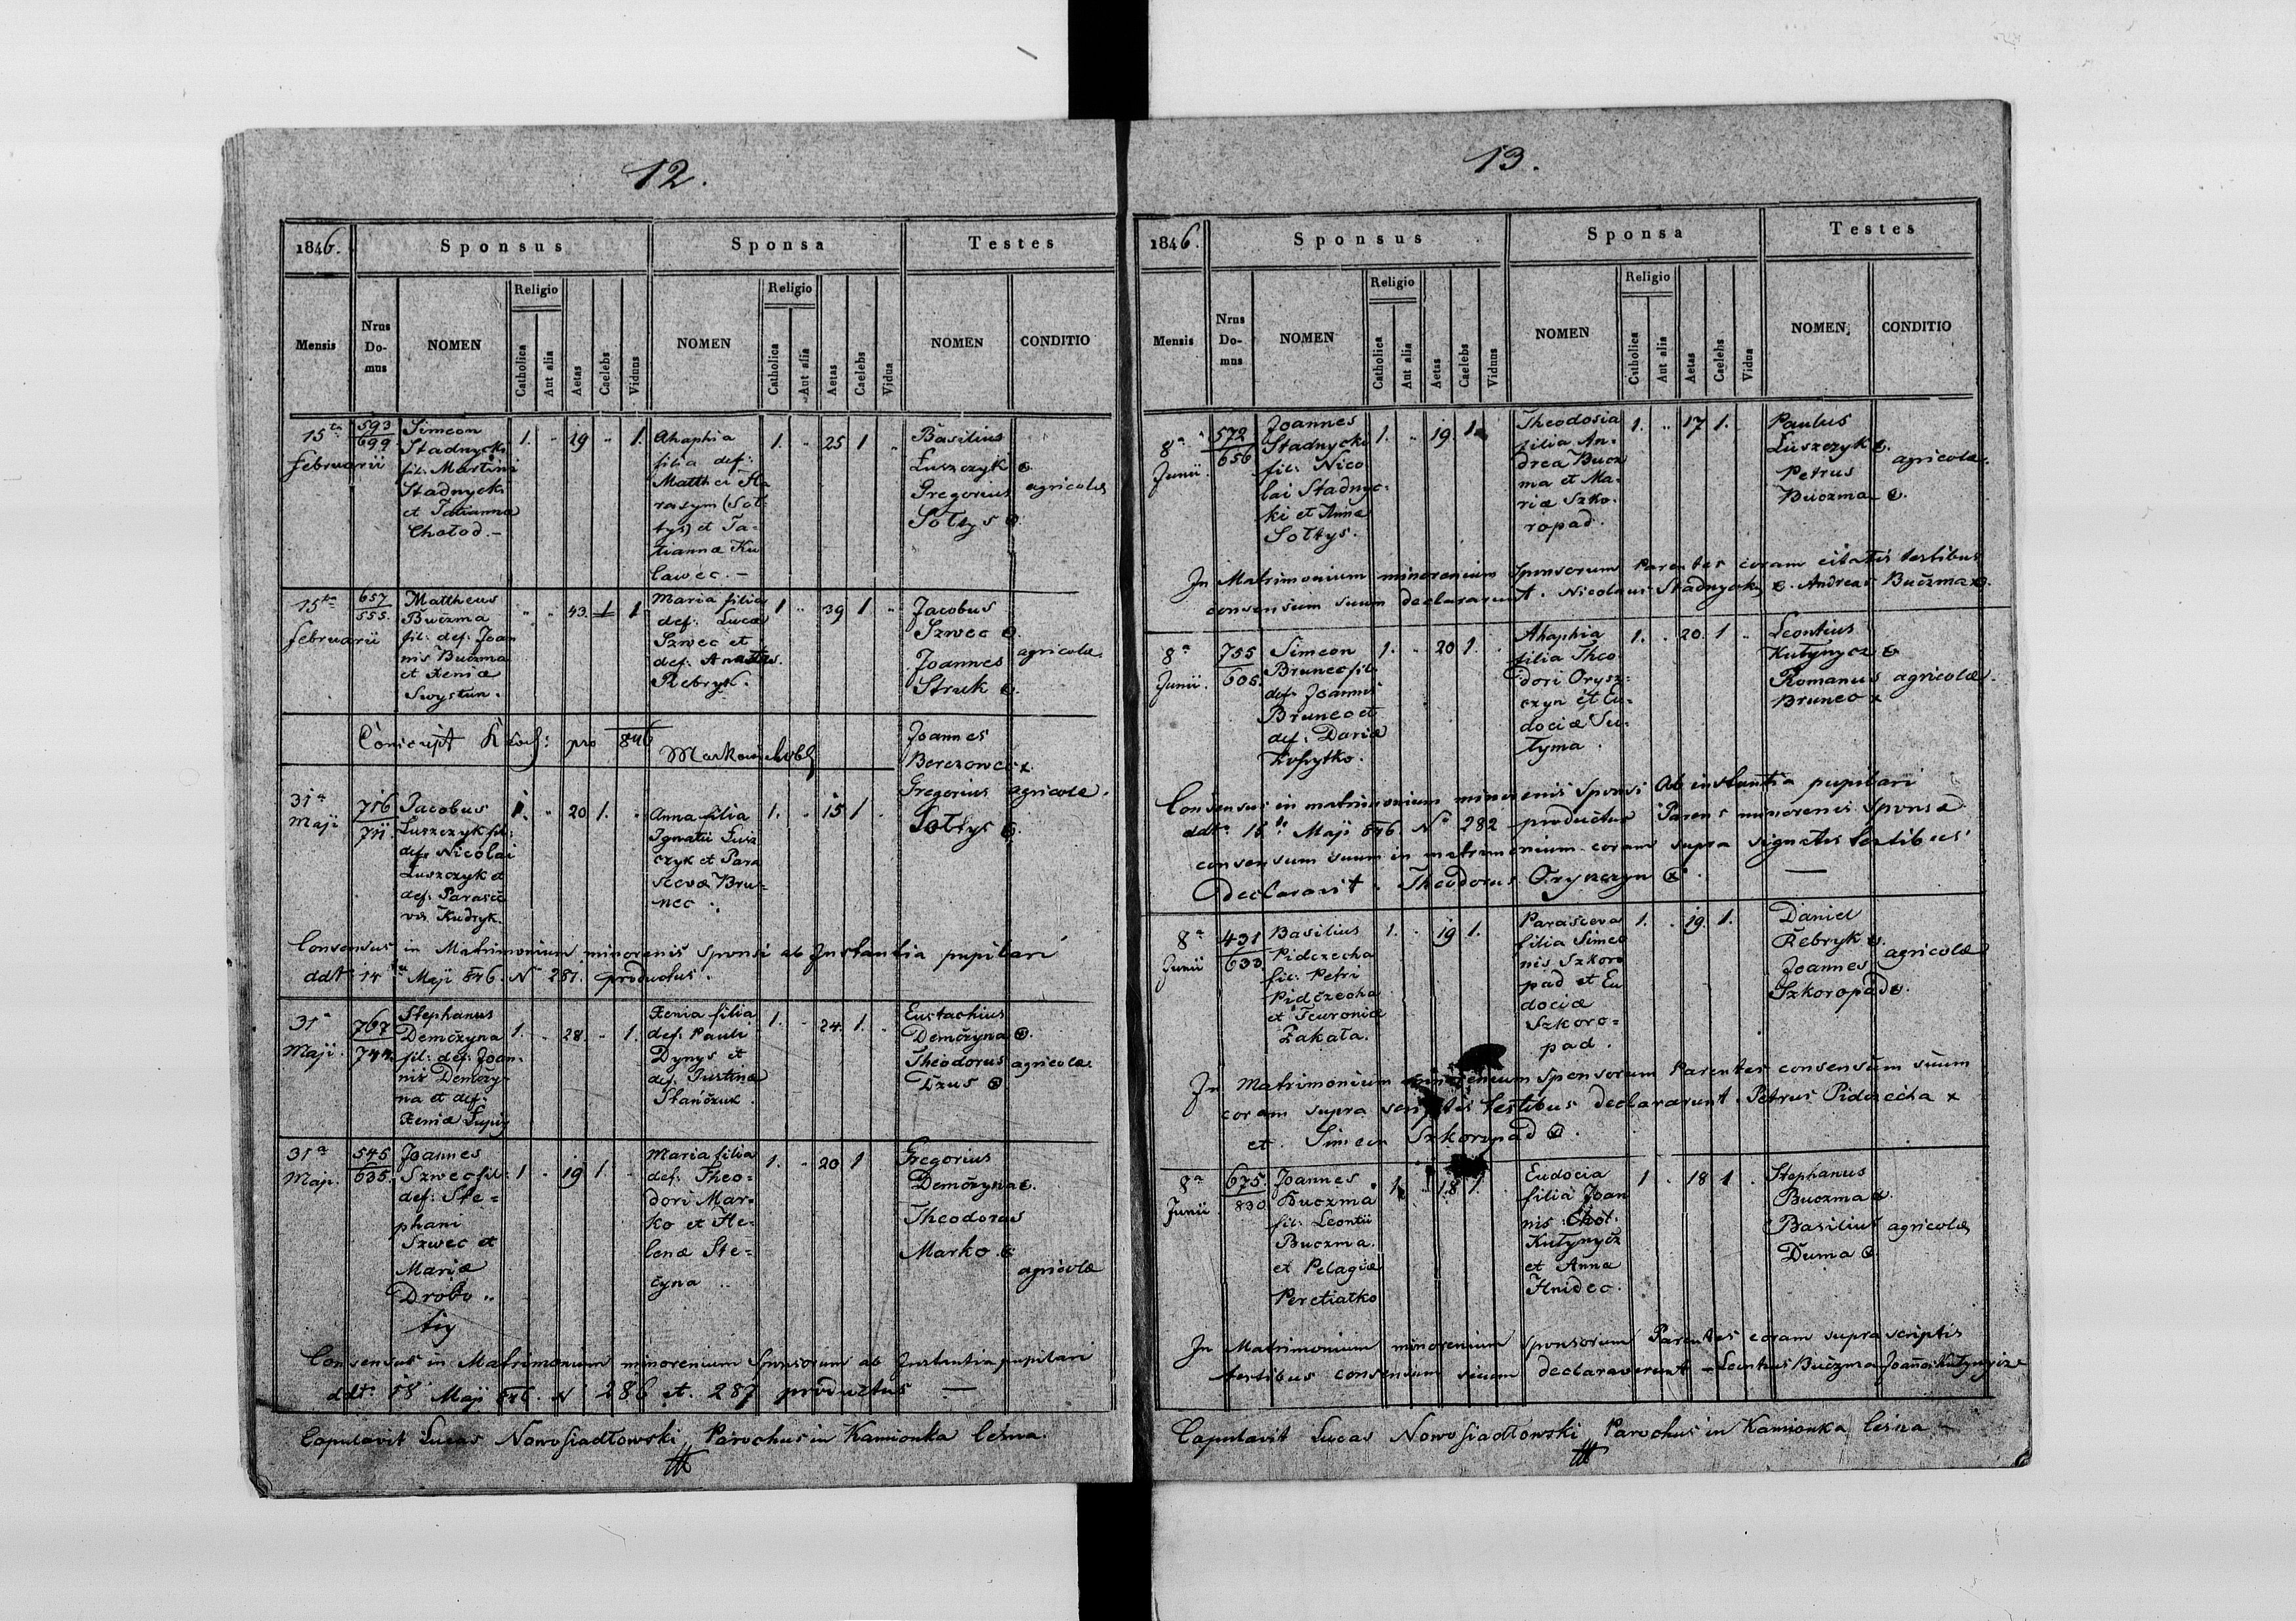 12.
1846.
Sponsus
Sponsa
Testes
Mensis
Nrus Do-mus
NOMEN
Religio
Catholica
Aut alia
Aetas
Caelebs
Viduus
NOMEN
Religio
Catholica
Aut alia
Aetas
Caelebs
Vidua
NOMEN
CONDITIO
15ta Februarii
593
699
Simeon
Stadnycki
fil: Martini
Stadnycki
et Tatianna
Chołod.–
1. " 29 " 1.
Ahaphia
filia def:
Matthei Ha
rasym (Soł
tys) et Ta-
tianna Ku
lawec.–
1. " 25 1 "
Basilius
Łuszczyk
Gregorius
Sołtys
agricolæ
15ta Februarii
657
555.
Mattheus
Buczma
fil: def: Joan
nis Buczma
et Xeniæ
Swystun.
" " 43. 1 1
Maria filia
def: Lucæ
Szwec et
def: Anastas.
Rebryk.
1 " 39 1 "
Jacobus
Szwec
Joannes
Struk
agricolæ.
Concept pro 846
31a Maji
756
711.
Jacobus
Łuszczyk fil:
def: Nicolai
Łuszczyk et
def: Parasce
væ Kudryk.
1. " 20 1. "
Anna filia
Ignatii Łusz
czyk et Para
scevæ Bru-
nec.
1. " 15 1 "
Joannes
Berezowec x.
Gregorius
Sołtys
agricolæ.
Consensus in Matrimonium minorenis Sponsi ab Instantia pupilari
ddto 14ta Maji 846. No 281. productus.
31a Maji.
767
744.
Stephanus
Demczyna
fil: def: Joan-
nis Demczy-
na et def:
Xeniæ Łupij
1. " 28. " 1.
Xenia filia
def: Pauli
Dynys et
def: Justinæ
Stańczuk.
1. " 24. 1. "
Eustachius
Demczyna
Theodorus
Dzus
agricolæ.
31a Maji.
545
635.
Joannes
Szwec fil:
def: Ste-
phani
Szwec et
Mariæ
Drobo-
tij
1 " 19 1 "
Maria filia
def: Theo-
dori Mar-
ko et He-
lenæ Ste-
cyna
1. " 20 1
Gregorius
Demczyna
Theodorus
Marko.
agricolæ
Consensus in Matrimonium minorenium Sponsorum ab Instantia pupilari
ddto 18 Maji 846. No 286 et. 287 productus —
Copulavit Lucas Nowosiadłowski Parochus in Kamionka leśna.
13.
1846.
Sponsus
Sponsa
Testes
Mensis
Nrus Do-mus
NOMEN
Religio
Catholica
Aut alia
Aetas
Caelebs
Viduus
NOMEN
Religio
Catholica
Aut alia
Aetas
Caelebs
Vidua
NOMEN
CONDITIO
8a Junii.
572
656
Joannes
Stadnycki
fil: Nico
lai Stadnyc-
ki et Anna
Sołtys.
1. " 19. 1.
Theodosia
filia An-
drea Bucz
ma et Ma-
riæ Szko-
ropad.
1. " 17 1.
Paulus
Łuszczyk
Petrus
Buczma
agricolæ.
In Matrimonium minorenium Sponsorum Parentes coram citatis testibus
consensum suum declararunt. Nicolaus Stadnycki. Andreas Buczma.
8a Junii.
755
605.
Simeon
Brunec fil:
def: Joannis
Brunec et
def: Dariæ
1. " 20 1.
Ahaphia
filia Theo
dori Orysz-
czyn et Eu-
dociæ Su-
tyma.
1. " 20. 1 "
Leontius
Kutynycz
Romanus
Brunec x
agricolæ.
Consensus in matrimonium minorenis sponsi ab instantia pupilari
ddto 18ta Maji 846. No 282 productus Parens minorenis sponsæ
consensum suum in matrimonium coram supra signatis testibus
declaravit. Theodorus Oryszczyn —
8a Junii
431
633.
Basilius
Pidczecha
fil: Petri
Pidczecha
et Fewroniæ
Zakala.
1. " 19 1.
Parasceva
filia Simeo
nis Szkoro
pad et Eu
dociæ
Szkoro-
pad.
1. " 19. 1.
Daniel
Rebryk
Joannes
Szkoropad
agricolæ
In Matrimonium minorenium sponsorum Parentes consensum suum
coram supra scriptis testibus declararunt. Petrus Pidczecha x
et Simeon Szkoropad.
8a Junii
675.
830
Joannes
Buczma
fil: Leontii
Buczma.
et Pelagiæ
Peretiatko
1. " 18 1.
Eudocia
filia Joan
nis Chot.
Kutynycz
et Anna
Hnidec.
1 " 18 1 "
Stephanus
Buczma
Basilius
Duma
agricolæ
In Matrimonium minorenium sponsorum Parentes coram supra scriptis
testibus consensum suum declaraverunt – Leontius Buczma Joannes Kutynycz
Copulavit Lucas Nowosiadłowski Parochus in Kamionka leśna –